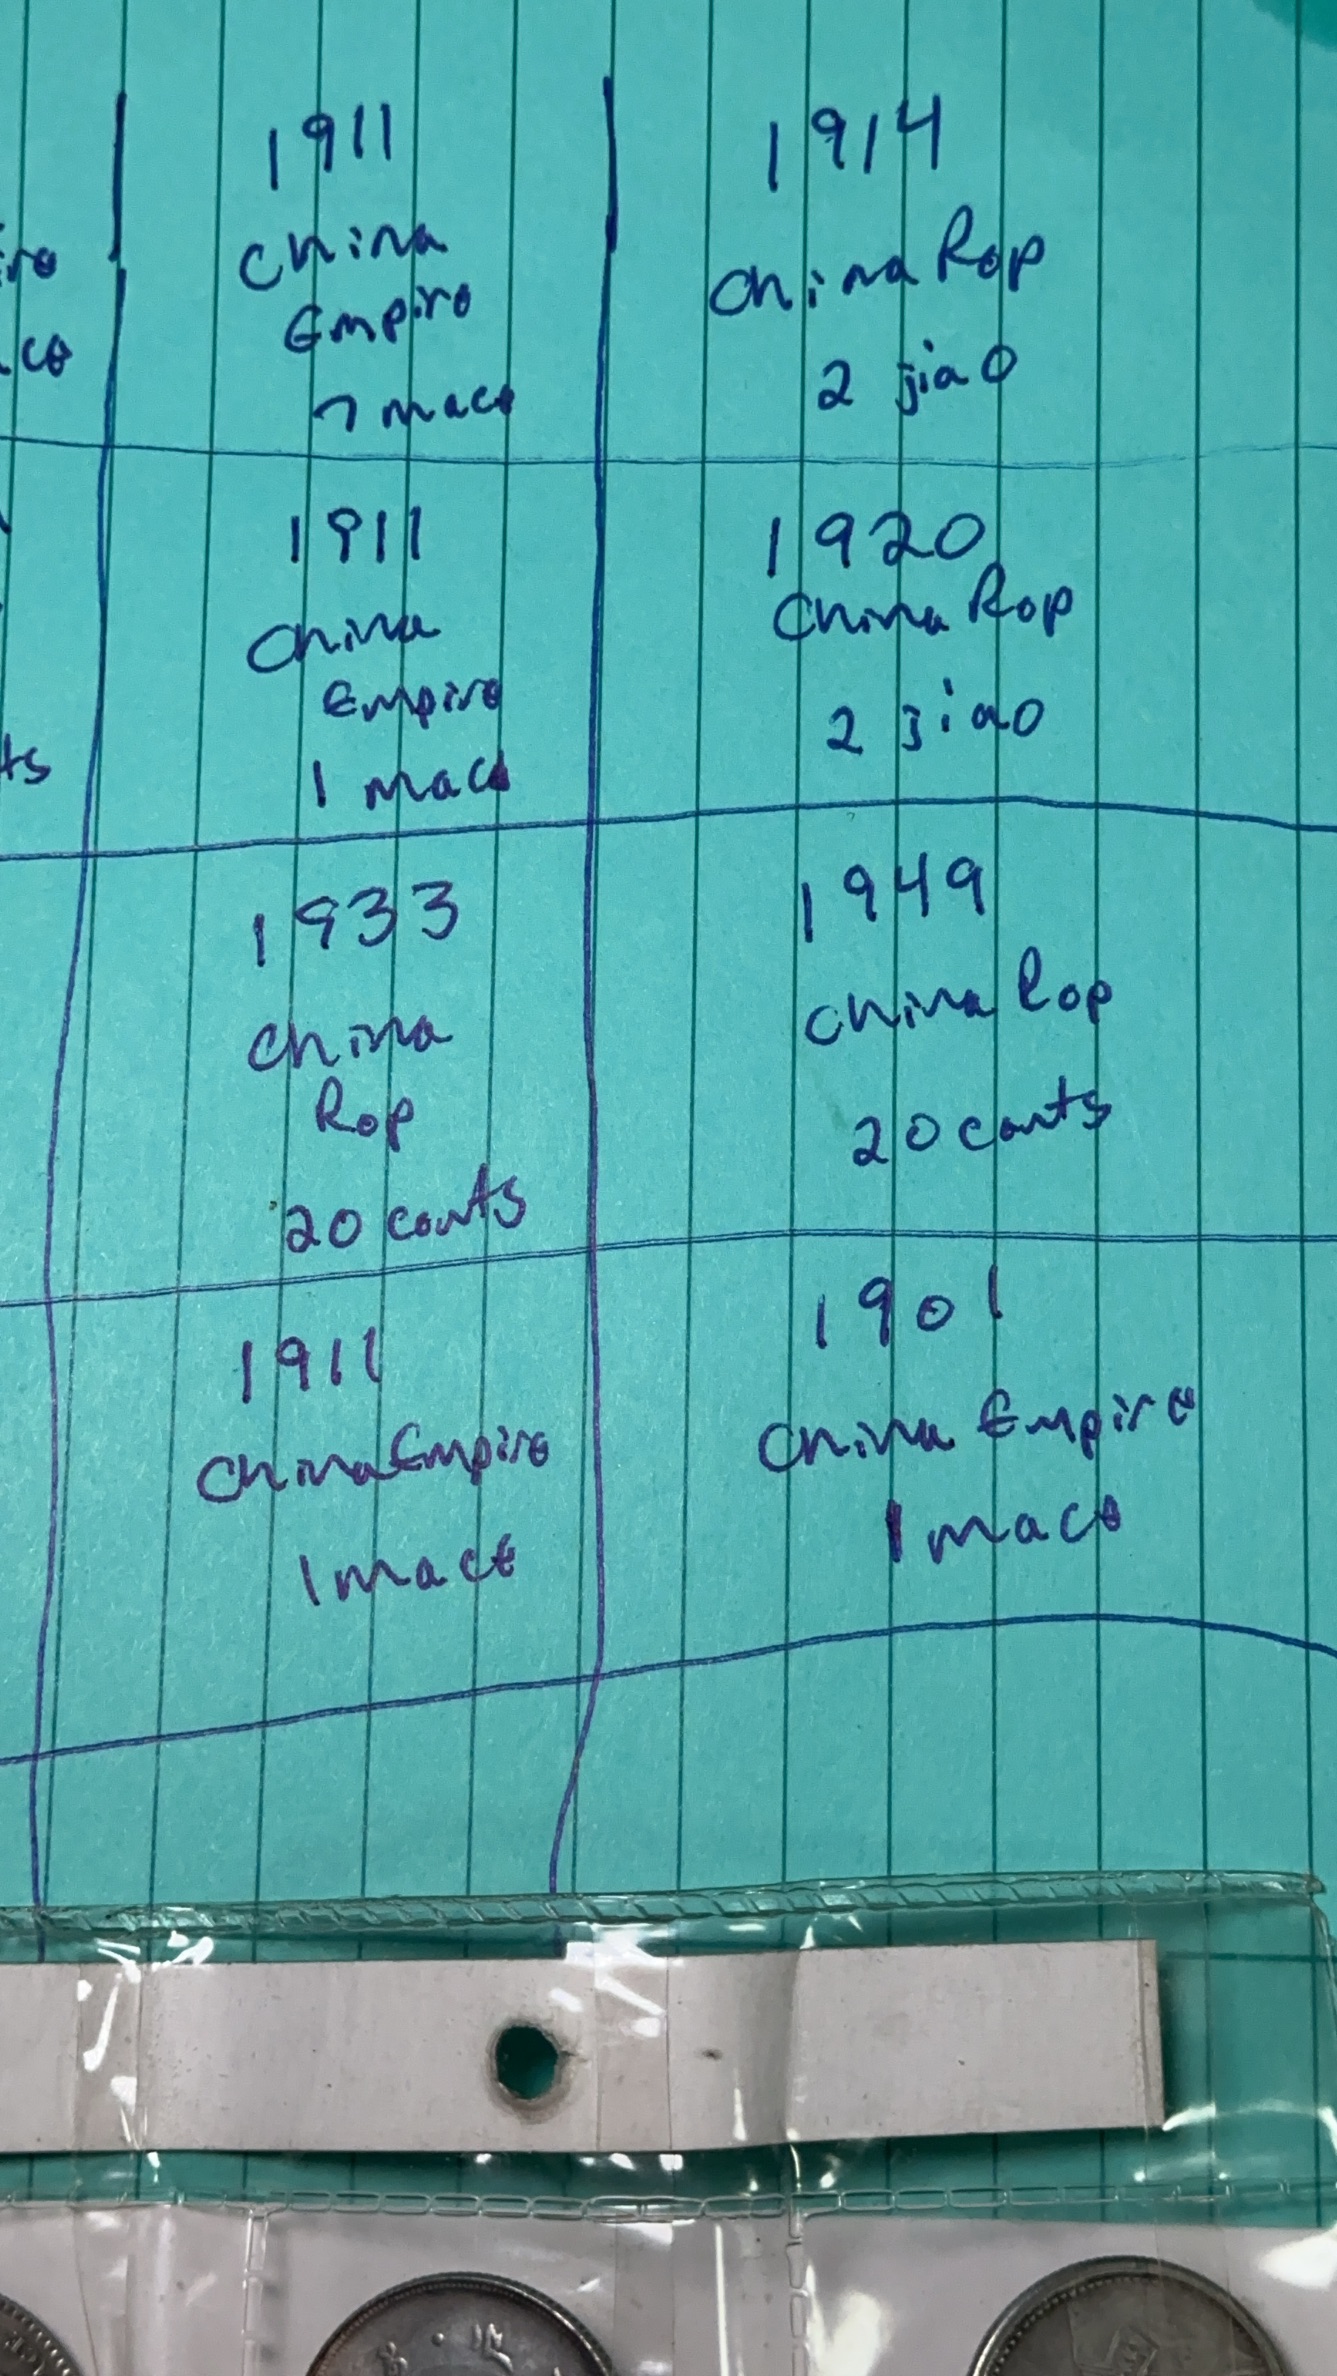 1911
China
Empire
7 mace
1914
China Rep
2 jiao
1911
China
Empire
1 mace
1920
China Rep
2 jiao
1933
China
Rep
20 cents
1949
China Rep
20 cents
1911
China Empire
1 mace
1901
China Empire
1 mace